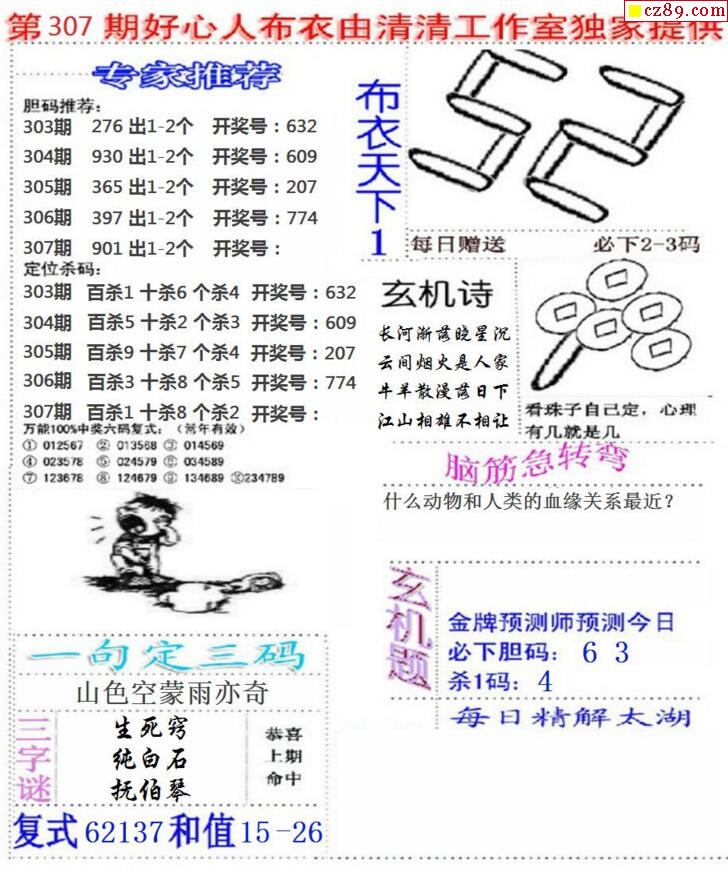 cz89.com
第307期好心人布衣由清清工作室独家提供
专家推荐
胆码推荐：
303期 276 出1-2个 开奖号：632
304期 930 出1-2个 开奖号：609
305期 365 出1-2个 开奖号：207
306期 397 出1-2个 开奖号：774
307期 901 出1-2个 开奖号：
定位杀码：
303期 百杀1 十杀6 个杀4 开奖号：632
304期 百杀5 十杀2 个杀3 开奖号：609
305期 百杀9 十杀7 个杀4 开奖号：207
306期 百杀3 十杀8 个杀5 开奖号：774
307期 百杀1 十杀8 个杀2 开奖号：
万能100%中奖六码复式：（常年有效）
① 012567 ② 013568 ③ 014569
④ 023578 ⑤ 024579 ⑥ 034589
⑦ 123678 ⑧ 124679 ⑨ 134689 ⑩234789
一句定三码
山色空蒙雨亦奇
三字谜
生死窍
纯白石
抚伯琴
恭喜
上期
命中
复式62137和值15-26
布衣天下1
52
每日赠送 必下2-3码
玄机诗
长河渐落晓星沉
云间烟火是人家
牛羊散漫落日下
江山相雄不相让
看珠子自己定，心理
有几就是几
脑筋急转弯
什么动物和人类的血缘关系最近？
玄机题
金牌预测师预测今日
必下胆码： 6 3
杀1码： 4
每日精解太湖